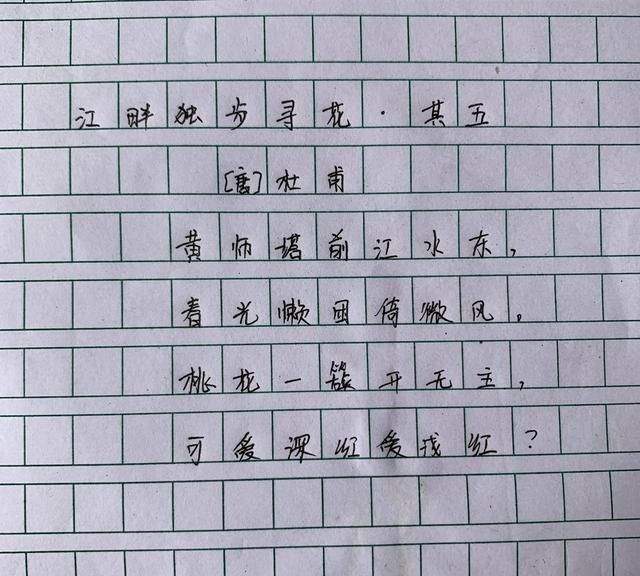 江畔独步寻花·其五
[唐]杜甫
黄师塔前江水东,
春光懒困倚微风,
桃花一簇开无主,
可爱深红爱浅红?